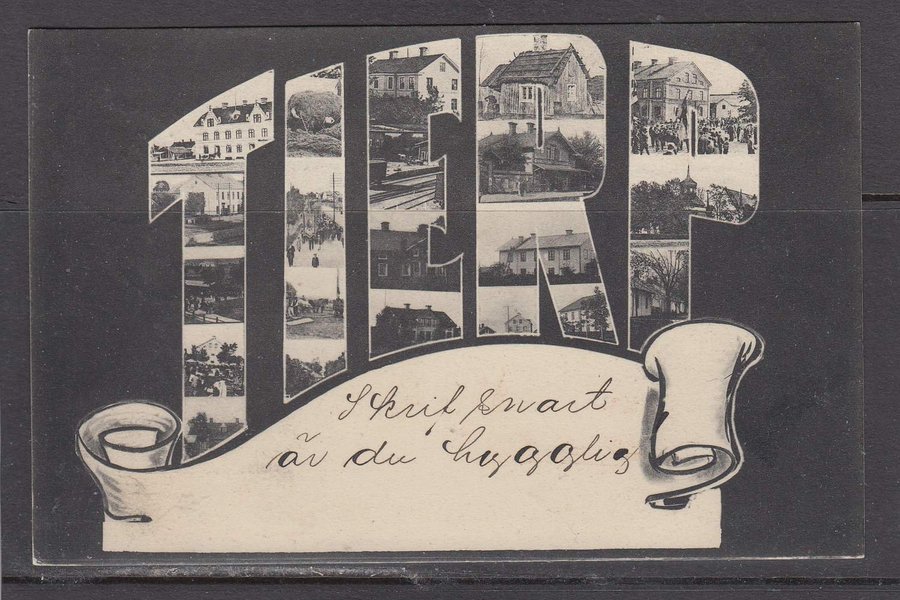 TIERP
Skrif snart
är du hygglig